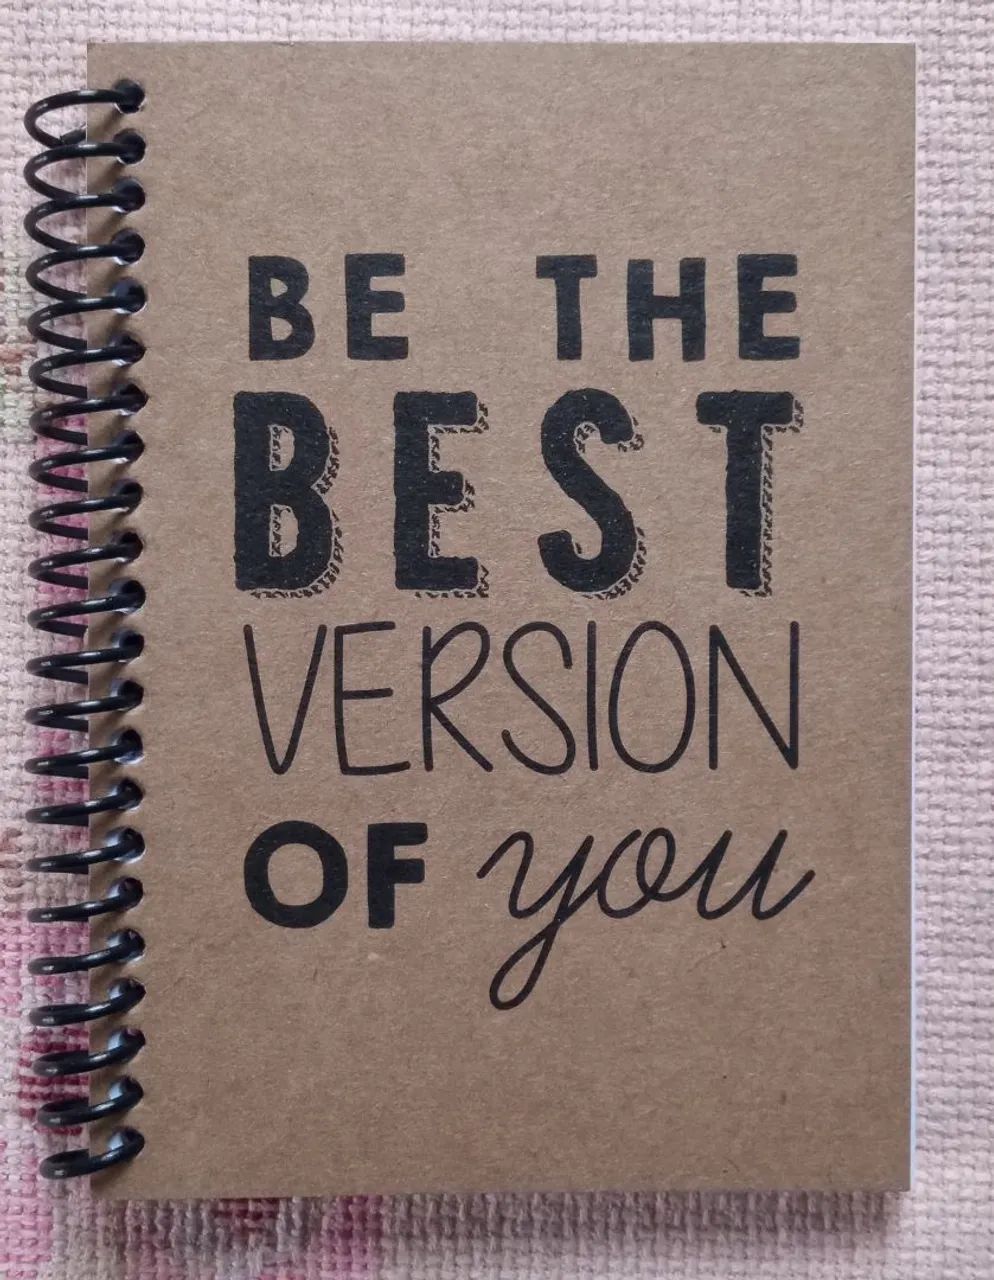 BE THE
BEST
VERSION
OF you